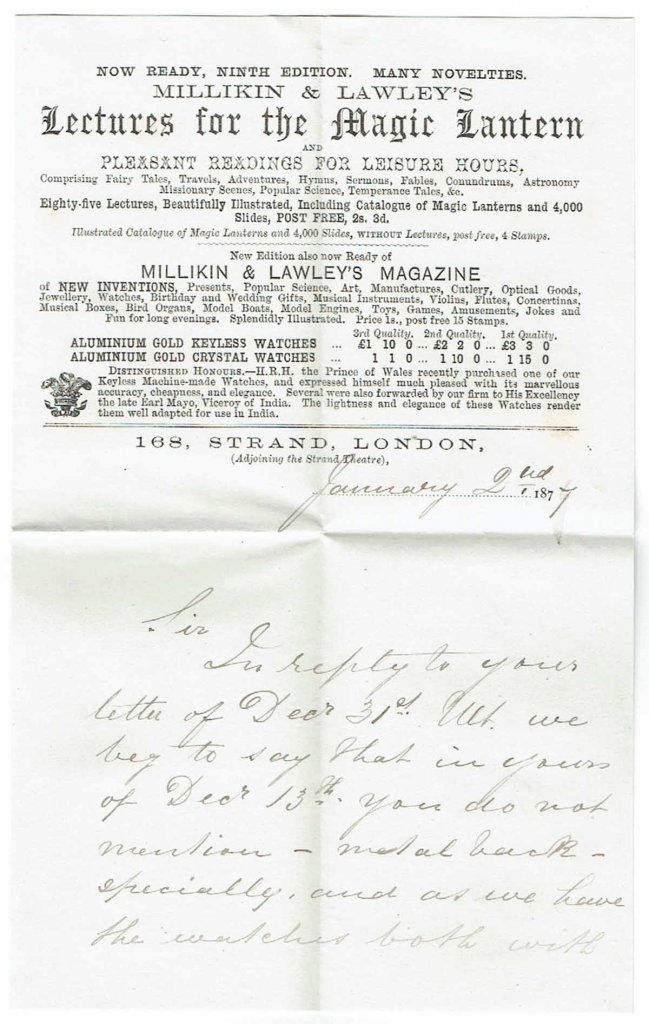 NOW READY, NINTH EDITION. MANY NOVELTIES.
MILLIKIN & LAWLEY'S
Lectures for the Magic Lantern
AND
PLEASANT READINGS FOR LEISURE HOURS,
Comprising Fairy Tales, Travels, Adventures, Hymns, Sermons, Fables, Conundrums, Astronomy
Missionary Scenes, Popular Science, Temperance Tales, &c.
Eighty-five Lectures, Beautifully Illustrated, Including Catalogue of Magic Lanterns and 4,000
Slides, POST FREE, 2s. 3d.
Illustrated Catalogue of Magic Lanterns and 4,000 Slides, WITHOUT Lectures, post free, 4 Stamps.
New Edition also now Ready of
MILLIKIN & LAWLEY'S MAGAZINE
of NEW INVENTIONS, Presents, Popular Science, Art, Manufactures, Cutlery, Optical Goods,
Jewellery, Watches, Birthday and Wedding Gifts, Musical Instruments, Violins, Flutes, Concertinas,
Musical Boxes, Bird Organs, Model Boats, Model Engines, Toys, Games, Amusements, Jokes and
Fun for long evenings. Splendidly Illustrated. Price 1s., post free 15 Stamps.
3rd Quality. 2nd Quality. 1st Quality.
ALUMINIUM GOLD KEYLESS WATCHES ... £1 10 0 ... £2 2 0 ... £3 3 0
ALUMINIUM GOLD CRYSTAL WATCHES ... 1 1 0 ... 1 10 0 ... 1 15 0
DISTINGUISHED HONOURS.—H.R.H. the Prince of Wales recently purchased one of our
Keyless Machine-made Watches, and expressed himself much pleased with its marvellous
accuracy, cheapness, and elegance. Several were also forwarded by our firm to His Excellency
the late Earl Mayo, Viceroy of India. The lightness and elegance of these Watches render
them well adapted for use in India.
168, STRAND, LONDON,
(Adjoining the Strand Theatre),
January 2nd 1877
Sir
In reply to your
letter of Decr 31st. Ult. we
beg to say that in yours
of Decr 13th. you do not
mention - metal back -
specially, and as we have
the watches both with